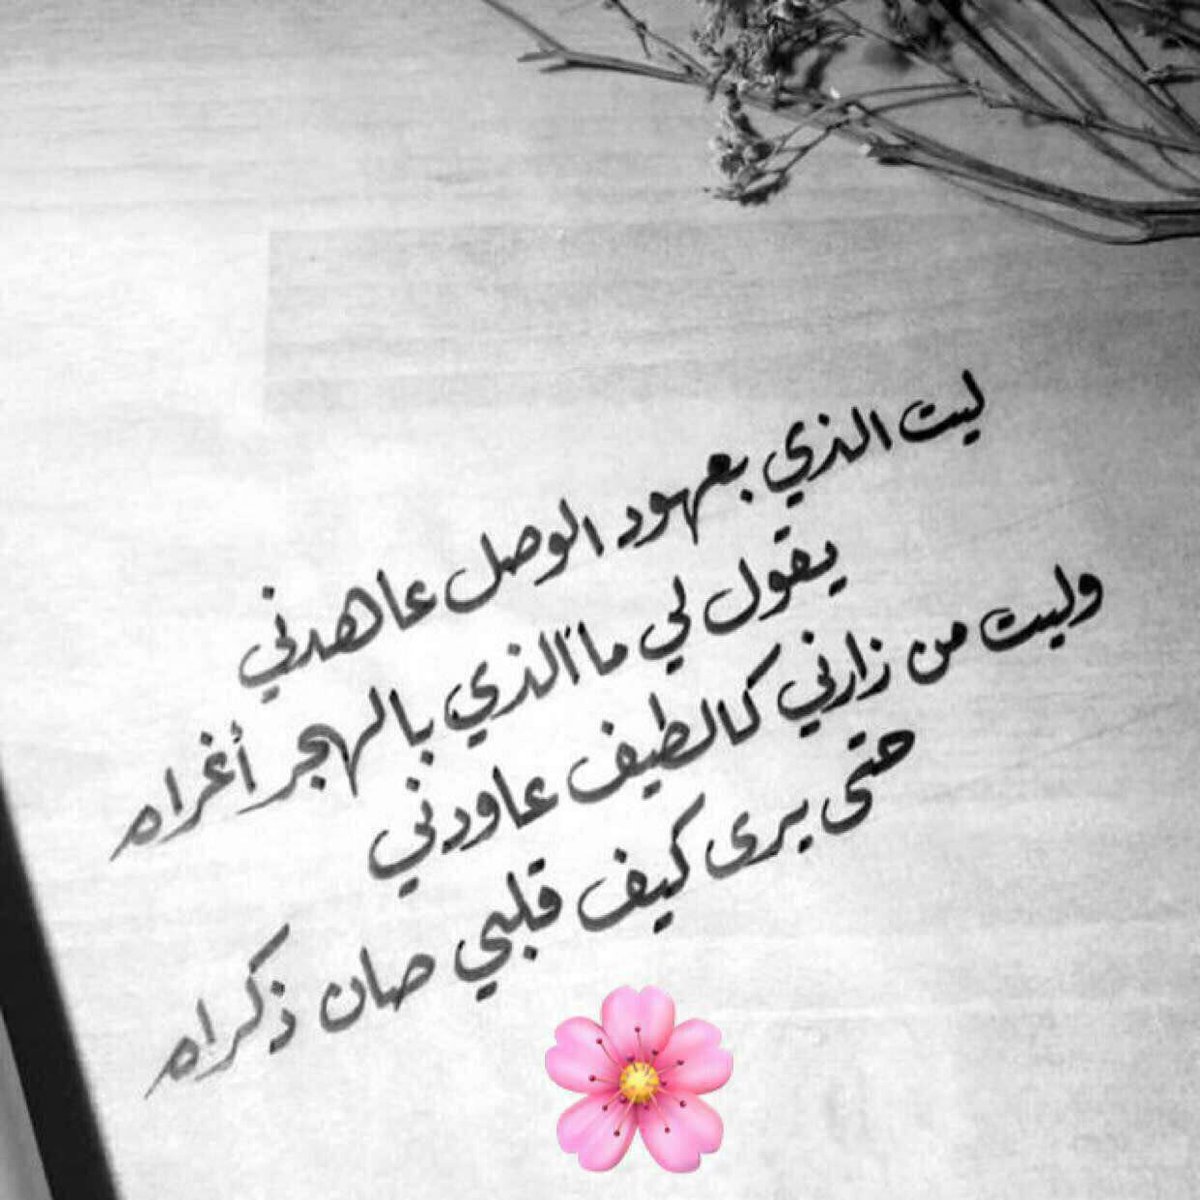 ليت الذي بعهود الوصل عاهدني
يقول لي ما الذي بالهجر أغراه
وليت من زارني كالطيف عاودني
حتى يرى كيف قلبي صان ذكراه